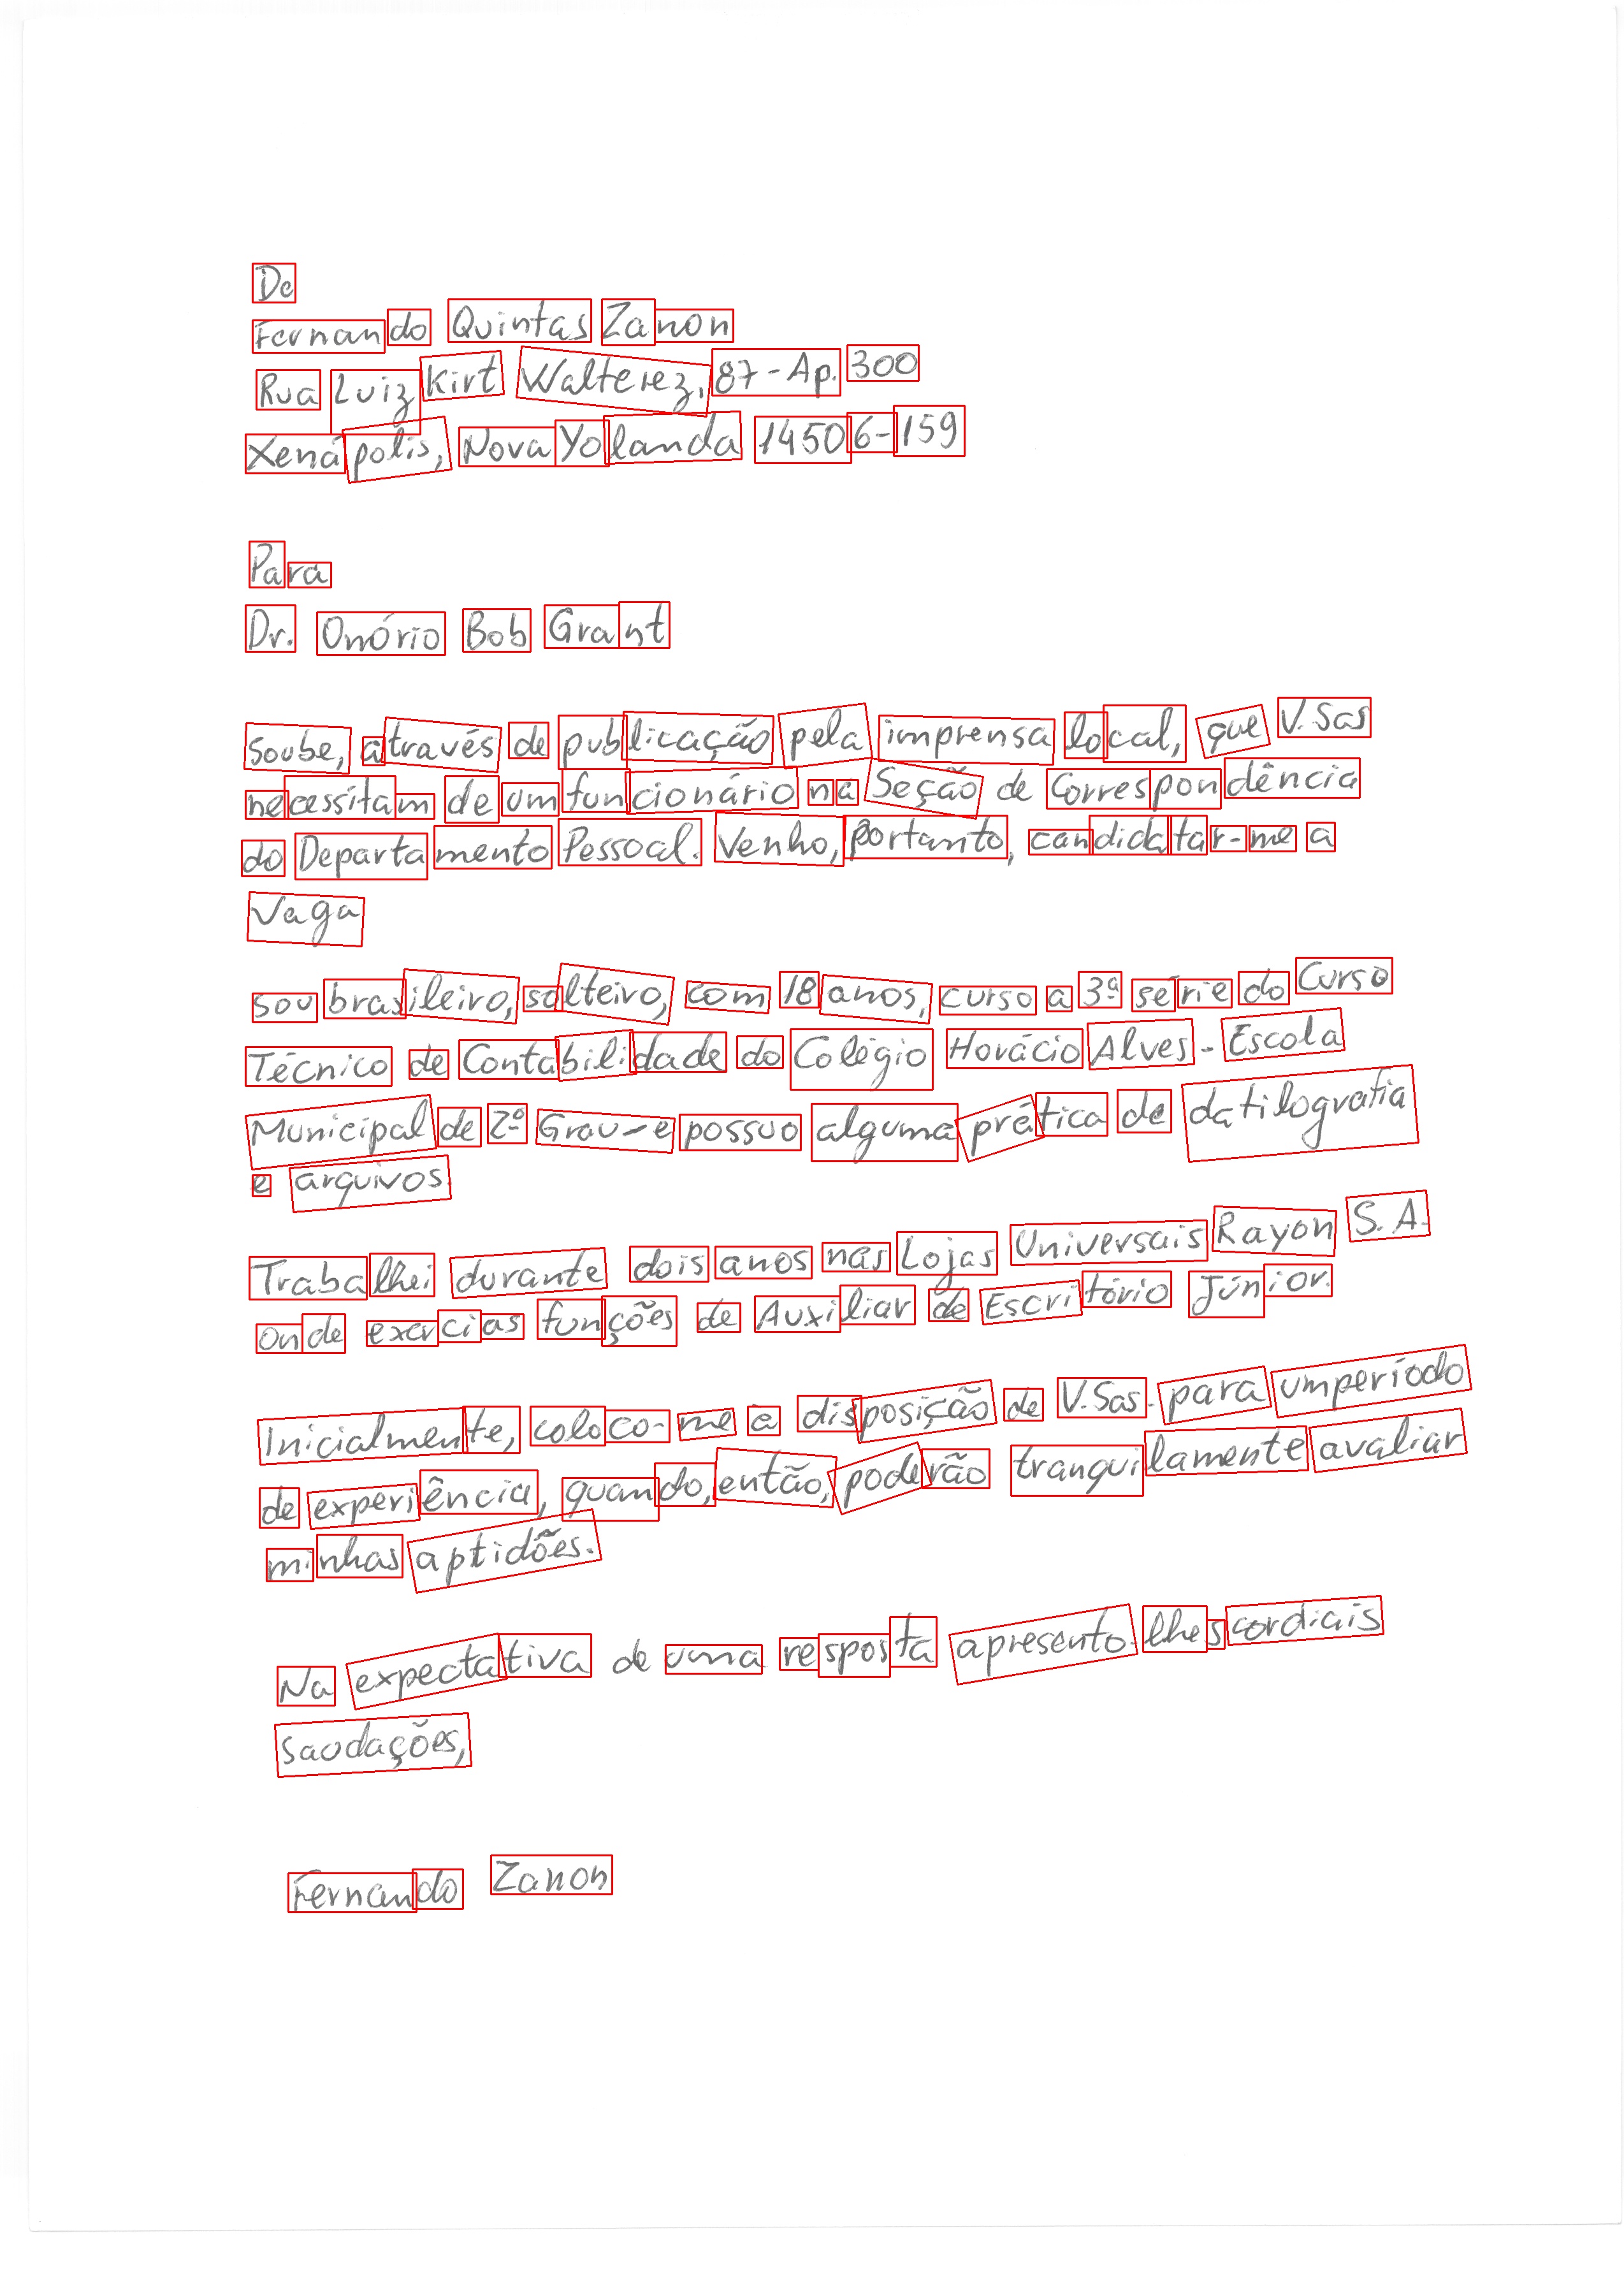 De
Fernando Quintas Zanon
Rua Luiz Kirt Walterez, 87-Ap. 300
Xenápolis, Nova Yolanda 14506-159
Para
Dr. Onório Bob Grant
Soube, através de publicação pela imprensa local, que V.Sas
necessitam de um funcionário na Seção de Correspondência
do Departamento Pessoal. Venho, portanto, candidatar-me a
Vaga
Sou brasileiro, solteiro, com 18 anos, curso a 3ª série do Curso
Técnico de Contabilidade do Colégio Horácio Alves - Escola
Municipal de 2º Grau - e possuo alguma prática de datilografia
e arquivos.
Trabalhei durante dois anos nas Lojas Universais Rayon S.A.
Onde exercias funções de Auxiliar de Escritório Júnior.
Inicialmente, coloco-me a disposição de V.Sas. para um período
de experiência, quando, então, poderão tranquilamente avaliar
minhas aptidões.
Na expectativa de uma resposta apresento-lhes cordiais
saudações,
Fernando Zanon